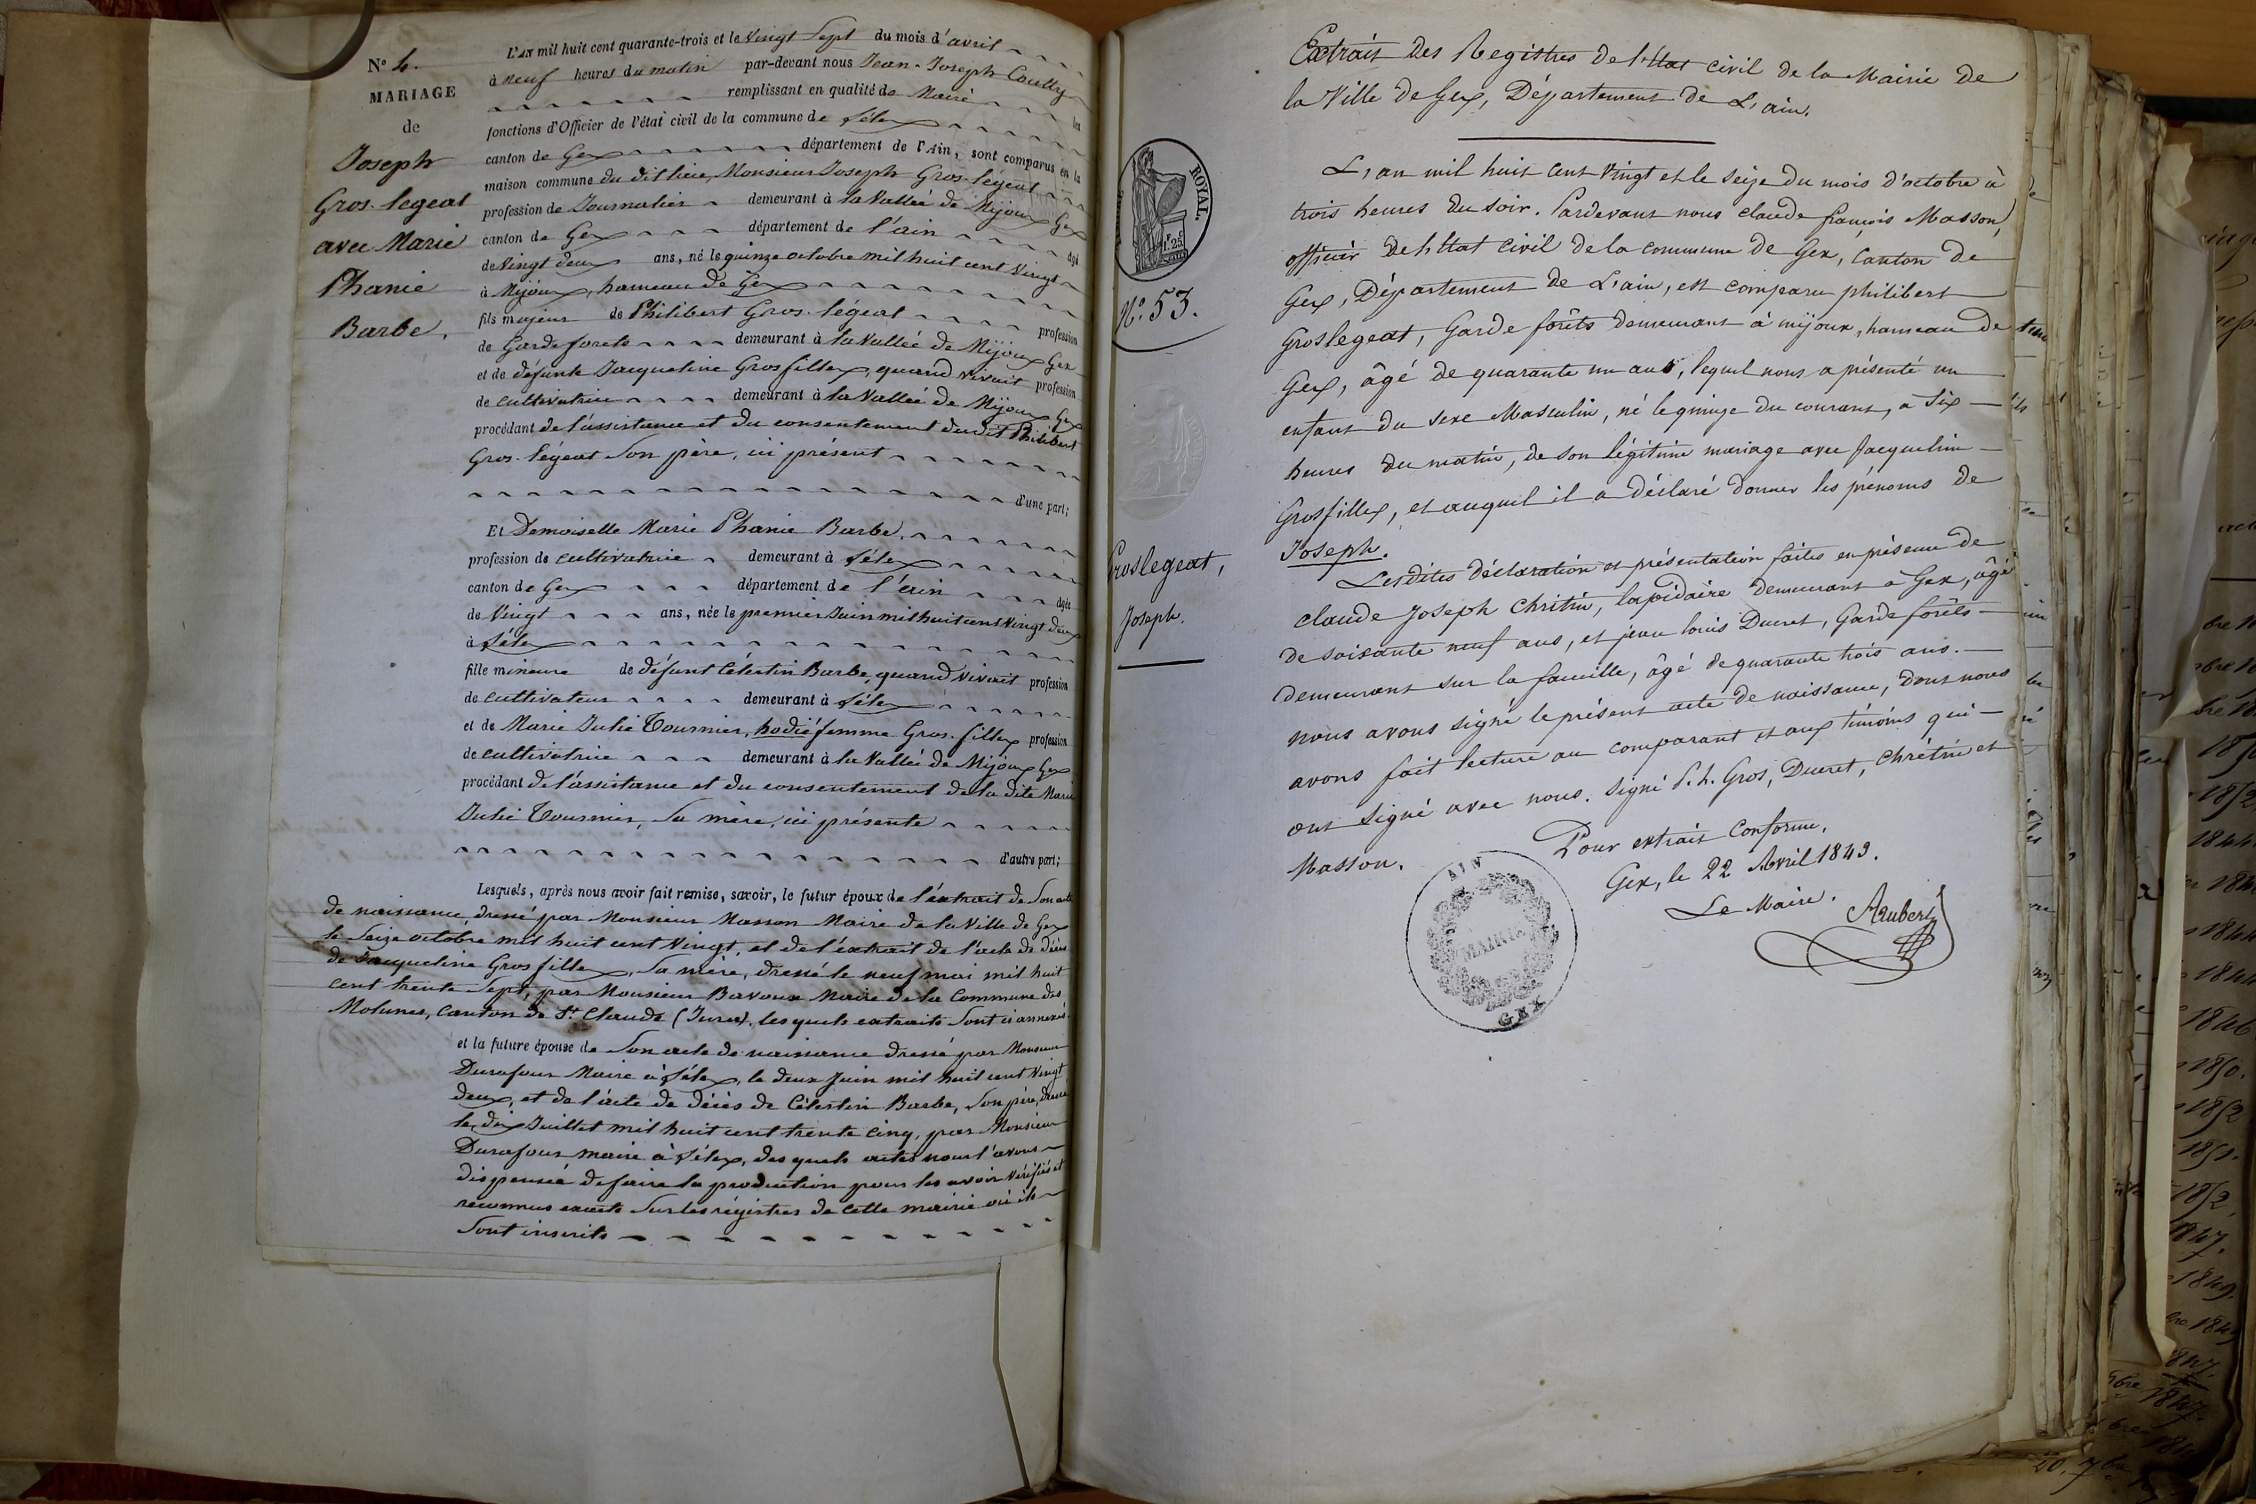 N° 4.
MARIAGE
de
Joseph
Gros-legeat
avec Marie
Phanie
Barbe.
L'an mil huit cent quarante-trois et le vingt sept du mois d'avril
à neuf heures du matin par-devant nous Jean-Joseph
remplissant en qualité de Maire les
fonctions d'Officier de l'état civil de la commune de Lélex
canton de Gex département de l'Ain, sont comparus en la
maison commune du dit lieu, Monsieur Joseph Gros-légeat
profession de Journalier demeurant à la Vallée de Mijoux Gex
canton de Gex département de l'ain âgé
de vingt deux ans, né le quinze octobre mil huit cent vingt
à Mijoux, hameau de Gex
fils majeur de Philibert Gros-légeat profession
de Garde forets demeurant à la Vallée de Mijoux Gex
et de défunte Jacqueline Grosfillex, quand vivait profession
de cultivatrice demeurant à la Vallée de Mijoux Gex
procédant de l'assistance et du consentement du dit Philibert
Gros-légeat son père, ici présent
d'une part;
Et Demoiselle Marie Phanie Barbe,
profession de cultivatrice demeurant à Lélex
canton de Gex département de l'ain âgée
de Vingt ans, née le premier Juin mil huit cent vingt deux
à Lélex
fille mineure de défunt Célestin Barbe, quand vivait profession
de cultivateur demeurant à Lélex
et de Marie Julie Tournier, hodié femme Gros-fillex profession
de cultivatrice demeurant à la Vallée de Mijoux Gex
procédant de l'assistance et du consentement de la dite Marie
Julie Tournier, sa mère, ici présente
d'autre part;
Lesquels, après nous avoir fait remise, savoir, le futur époux de l'extrait de son acte
de naissance dressé par Monsieur Masson Maire de la Ville de Gex
le seize octobre mil huit cent vingt, et de l'extrait de l'acte de décès
de Jacqueline Grosfillex, sa mère, dressé le neuf mai mil huit
cent trente sept, par Monsieur Bavoux Maire de la Commune des
Molunes, canton de St Claude (Jura), lesquels extraits sont ci annexés.
et la future épouse de son acte de naissance dressé par Monsieur
Durafour Maire à Lélex, le deux Juin mil huit cent vingt
deux, et de l'acte de décès de Célestin Barbe, son père, dressé
le dix Juillet mil huit cent trente cinq, par Monsieur
Durafour maire à Lélex, des quels actes nous l'avons
dispensée de faire la production pour les avoir vérifiés et
reconnus exacts sur les régistres de cette mairie où ils
sont inscrits
ROYAL.
1F.25
N°. 53.
Groslegeat,
Joseph.
Extrait des Registres de l'Etat civil de la Mairie de
la Ville de Gex, Département de L'ain.
L'an mil huit cent vingt et le seize du mois d'octobre à
trois heures du soir. Pardevant nous claude françois Masson,
officier de l'Etat civil de la commune de Gex, Canton de
Gex, Département de L'ain, est comparu philibert
Groslegeat, Garde forêts demeurant à mijoux, hameau de
Gex, âgé de quarante un ans, lequel nous a présenté un
enfant du sexe Masculin, né le quinze du courant, à six
heures du matin, de son légitime mariage avec Jacqueline
Grosfillex, et auquel il a déclaré donner les prénoms de
Joseph.
Lesdites déclaration et présentation faites en présence de
claude Joseph Chritin, lapidaire demeurant à Gex, âgé
de soixante neuf ans, et jean louis Ducret, Garde forêts
demeurant sur la faucille, âgé de quarante trois ans.
nous avons signé le présent acte de naissance, dont nous
avons fait lecture au comparant et aux témoins qui
ont signé avec nous. Signé P. h. Gros, Ducret, Chrétin et
Masson.
Pour extrait Conforme,
Gex, le 22 Avril 1843.
Le Maire.
AIN
MAIRIE
GEX